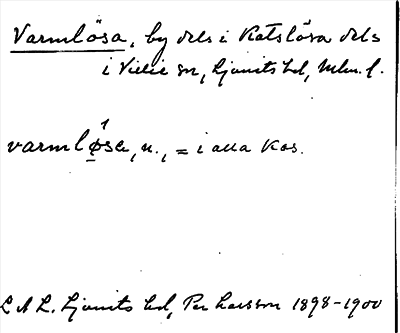 Varmlösa, by dels i Katslösa dels
i Vallie sn, Ljunits hd, Mlm. l.
varmlø̱̍sa, n., = i alla kas.
L A L. Ljunits hd, Per Larsson 1898-1900